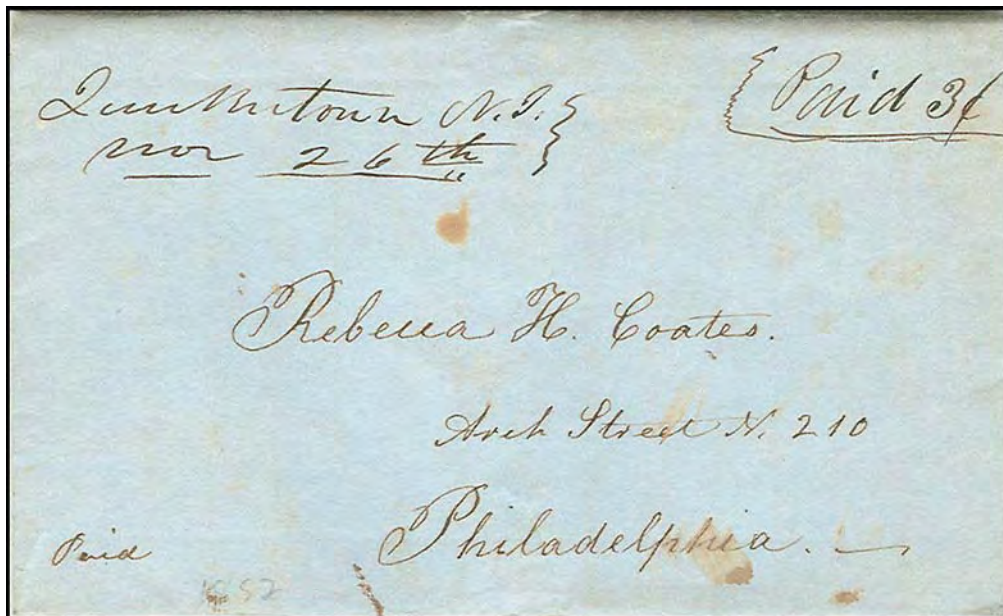 N.J.
Nov 26th
Paid 3¢
Rebecca H. Coates.
Arch Street N. 210
Philadelphia.
Paid
1852